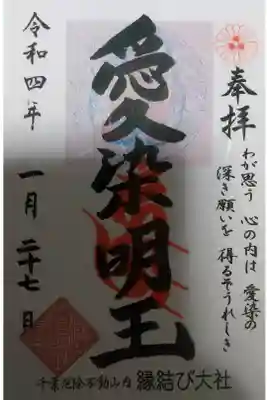 奉拝
わが思う 心の内は 愛染の
深き願いを 得るぞうれしき
愛染明王
令和四年 一月 二十七日
千葉厄除不動山内 縁結び大社